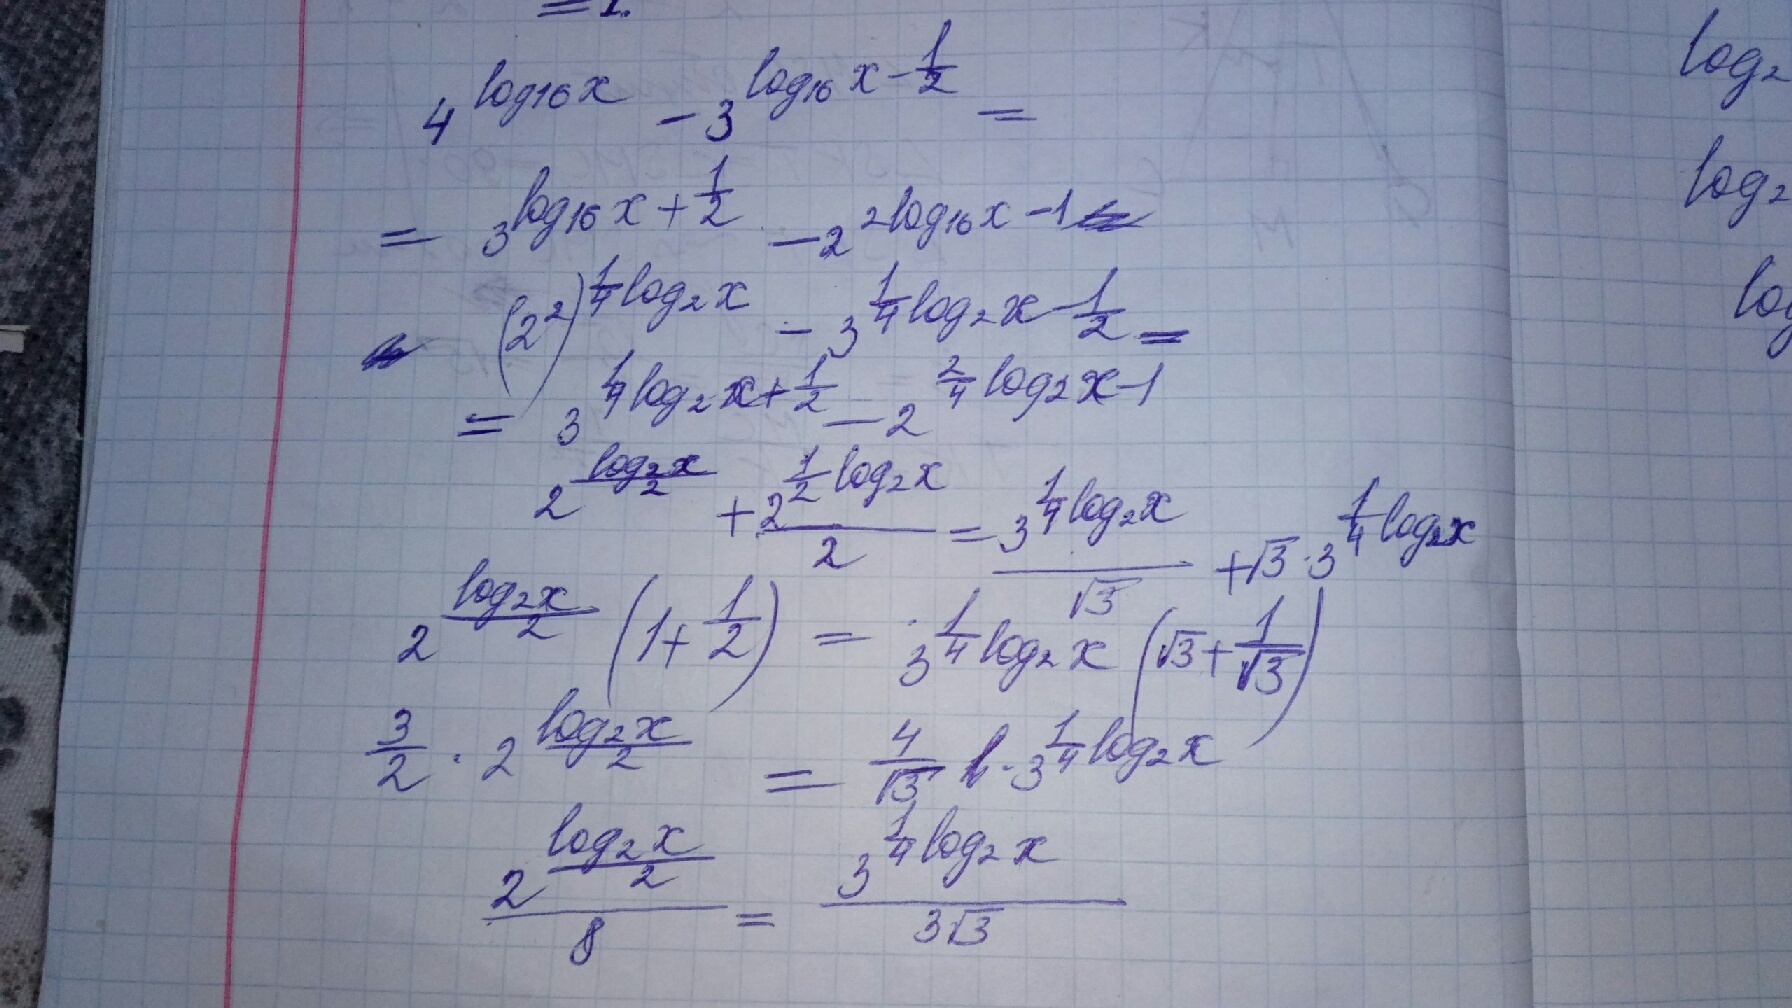 = 1.
4^{log_{16} x} - 3^{log_{16} x - \frac{1}{2}} =
= 3^{log_{16} x + \frac{1}{2}} - 2^{2 log_{16} x - 1}
(2^2)^{\frac{1}{4} log_2 x} - 3^{\frac{1}{4} log_2 x - \frac{1}{2}} =
= 3^{\frac{1}{4} log_2 x + \frac{1}{2}} - 2^{\frac{2}{4} log_2 x - 1}
2^{\frac{log_2 x}{2}} + \frac{2^{\frac{1}{2} log_2 x}}{2} = \frac{3^{\frac{1}{4} log_2 x}}{\sqrt{3}} + \sqrt{3} · 3^{\frac{1}{4} log_2 x}
2^{\frac{log_2 x}{2}} (1 + \frac{1}{2}) = 3^{\frac{1}{4} log_2 x} (\sqrt{3} + \frac{1}{\sqrt{3}})
\frac{3}{2} · 2^{\frac{log_2 x}{2}} = \frac{4}{\sqrt{3}} · 3^{\frac{1}{4} log_2 x}
\frac{2^{\frac{log_2 x}{2}}}{8} = \frac{3^{\frac{1}{4} log_2 x}}{3\sqrt{3}}
log_2
log_2
log